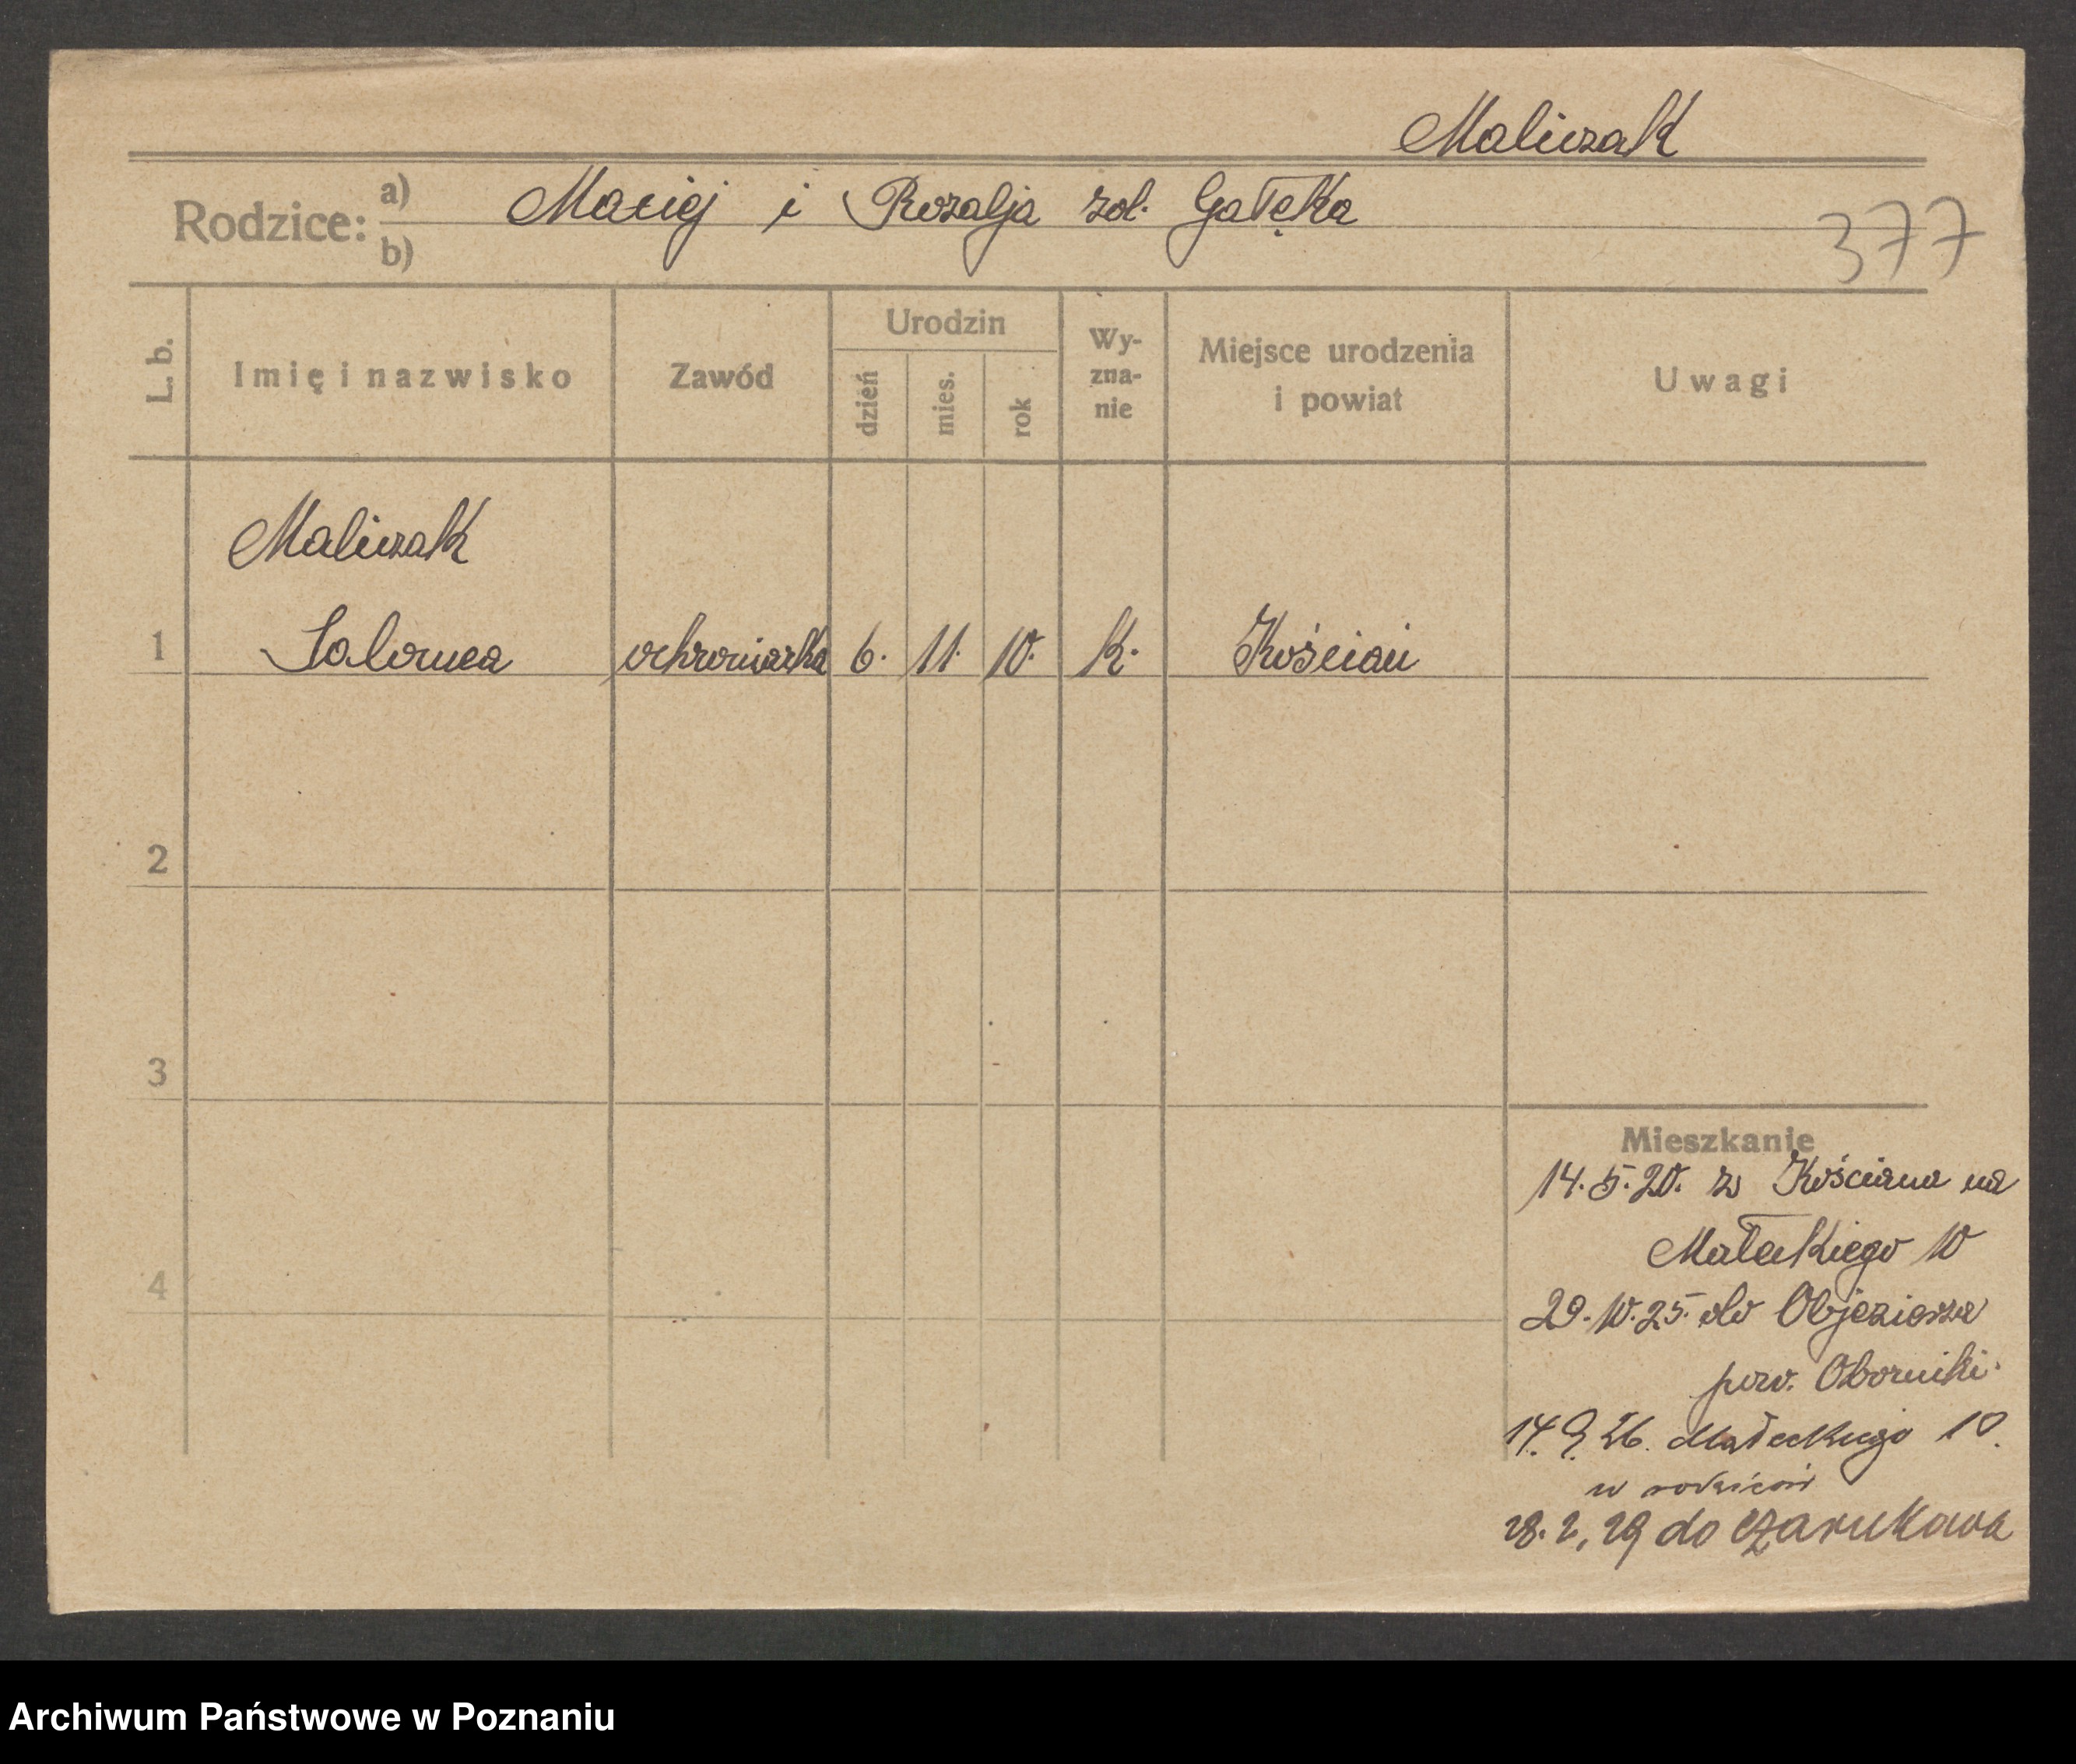 Maliczak
Rodzice: a) b) Maciej i Rozalja zol. Gałęka
377
L. b.
Imię i nazwisko
Zawód
Urodzin
dzień
mies.
rok
Wy-
zna-
nie
Miejsce urodzenia
i powiat
Uwagi
Maliczak
1 Salomea ochroniarka 6. 11. 10. k. Kościan
2
3
4
Mieszkanie
14.5.20. z Kościana na
Małeckiego 10
29.10.25. do Objezierza
pow. Oborniki.
14.9.26. Małeckiego 10.
u rodziców
28.2.29 do Czarnkowa
Archiwum Państwowe w Poznaniu